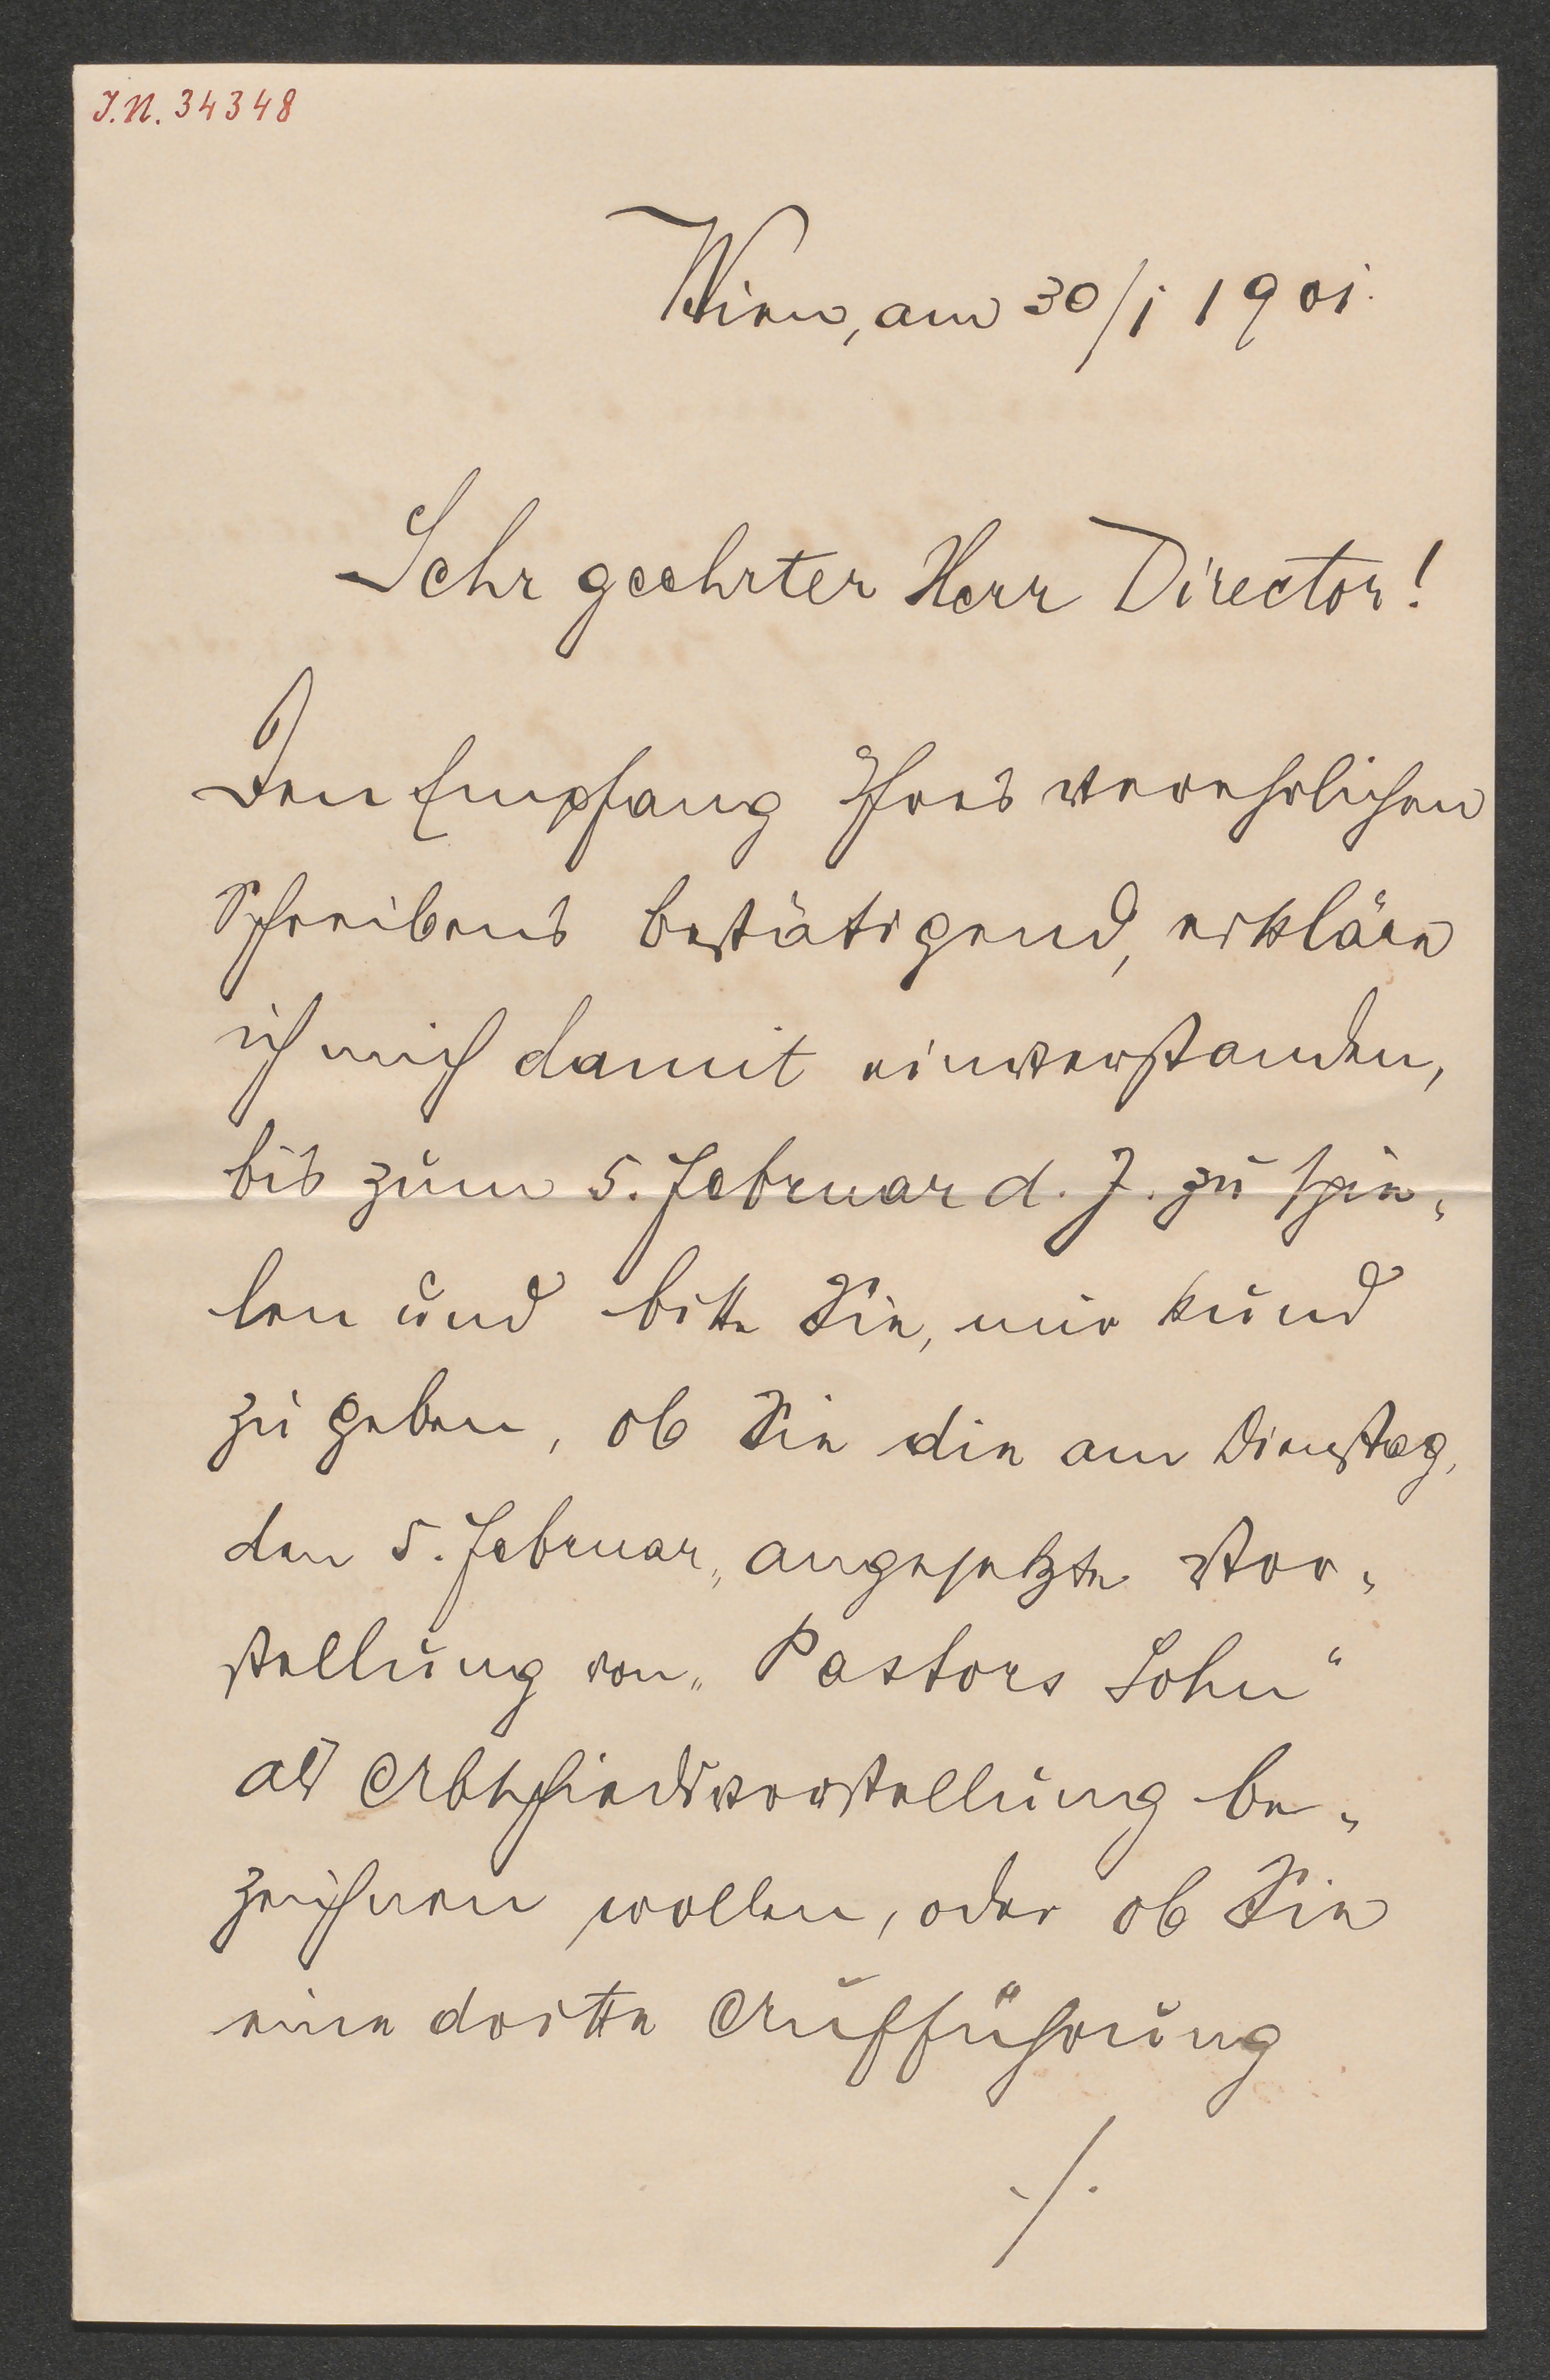 J.N. 34348
Wien, am 30/1 1901.
Sehr geehrter Herr Director!
Den Empfang Ihres verehrlichen
Schreibens bestätigend, erkläre
ich mich damit einverstanden,
bis zum 5. Februar d. J. zu spie„
len und bitte Sie, mir kund
zu geben, ob Sie die am Dienstag,
den 5. Februar, angesetzte Vor„
stellung von „Pastors Sohn“
als Abschiedsvorstellung be„
zeichnen wollen, oder ob Sie
eine dritte Aufführung
./.